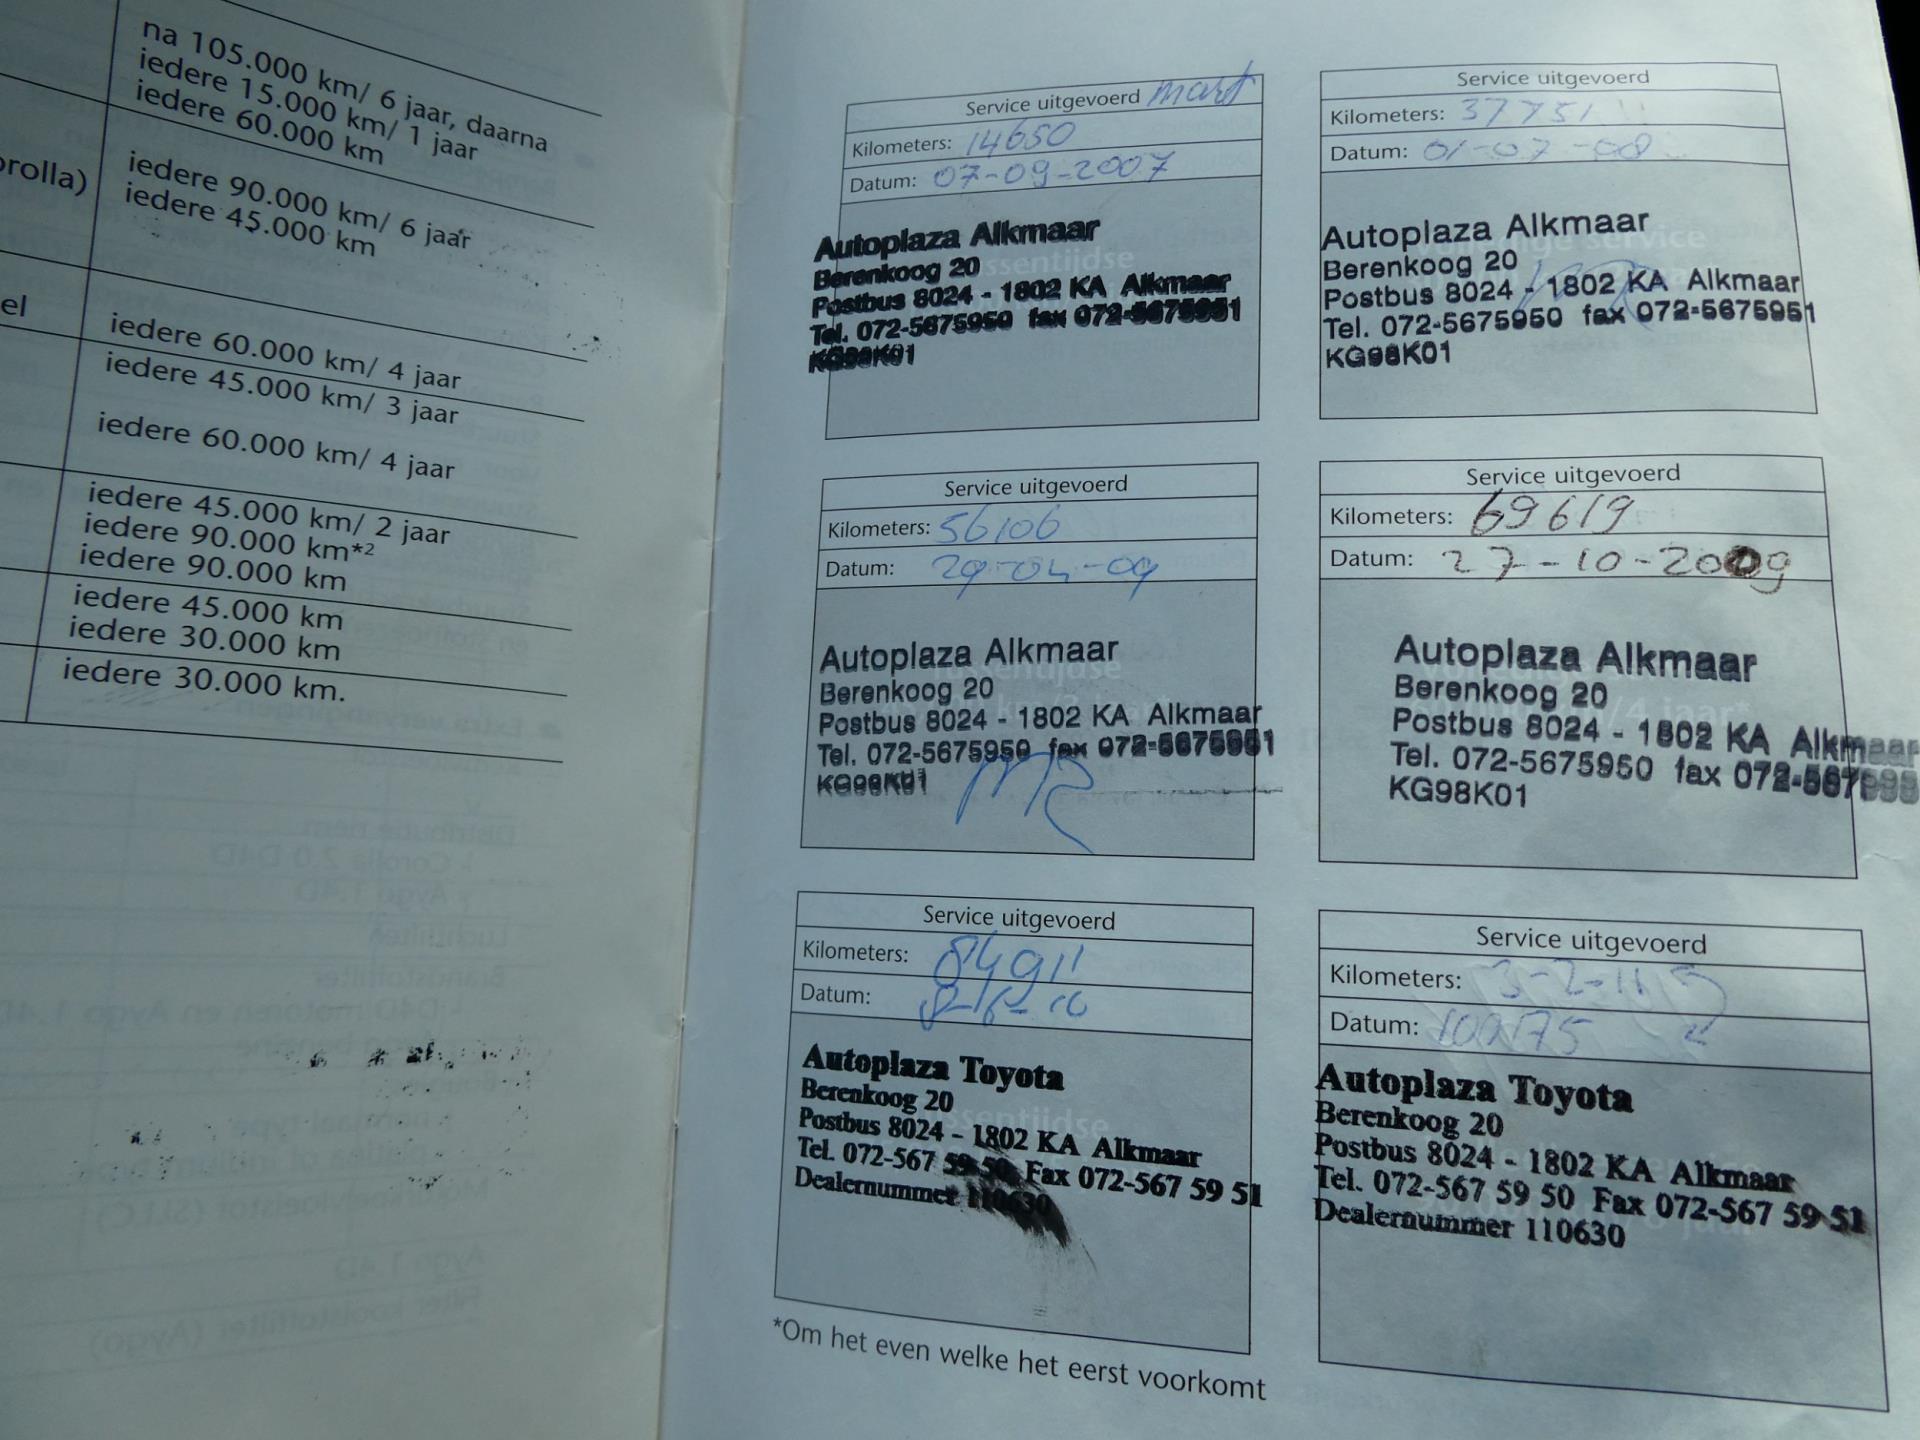 na 105.000 km/ 6 jaar, daarna
iedere 15.000 km/ 1 jaar
iedere 60.000 km
orolla)
iedere 90.000 km/ 6 jaar
iedere 45.000 km
el
iedere 60.000 km/ 4 jaar
iedere 45.000 km/ 3 jaar
iedere 60.000 km/ 4 jaar
iedere 45.000 km/ 2 jaar
iedere 90.000 km*2
iedere 90.000 km
iedere 45.000 km
iedere 30.000 km
iedere 30.000 km.
Service uitgevoerd
Kilometers: 14650
Datum: 07-09-2007
Autoplaza Alkmaar
Berenkoog 20
Postbus 8024 - 1802 KA Alkmaar
Tel. 072-5675950 fax 072-5675951
KG98K01
Service uitgevoerd
Kilometers: 37751
Datum: 01-07-08
Autoplaza Alkmaar
Berenkoog 20
Postbus 8024 - 1802 KA Alkmaar
Tel. 072-5675950 fax 072-5675951
KG98K01
Service uitgevoerd
Kilometers: 56106
Datum: 29-04-09
Autoplaza Alkmaar
Berenkoog 20
Postbus 8024 - 1802 KA Alkmaar
Tel. 072-5675950 fax 072-5675951
KG98K01
Service uitgevoerd
Kilometers: 69619
Datum: 27-10-2009
Autoplaza Alkmaar
Berenkoog 20
Postbus 8024 - 1802 KA Alkmaar
Tel. 072-5675950 fax
KG98K01
Service uitgevoerd
Kilometers: 84911
Datum:
Autoplaza Toyota
Berenkoog 20
Postbus 8024 - 1802 KA Alkmaar
Tel. 072-567 59 50 Fax 072-567 59 51
Dealernummer 110630
Service uitgevoerd
Kilometers: 3-2-11
Datum:
Autoplaza Toyota
Berenkoog 20
Postbus 8024 - 1802 KA Alkmaar
Tel. 072-567 59 50 Fax 072-567 59 51
Dealernummer 110630
*Om het even welke het eerst voorkomt